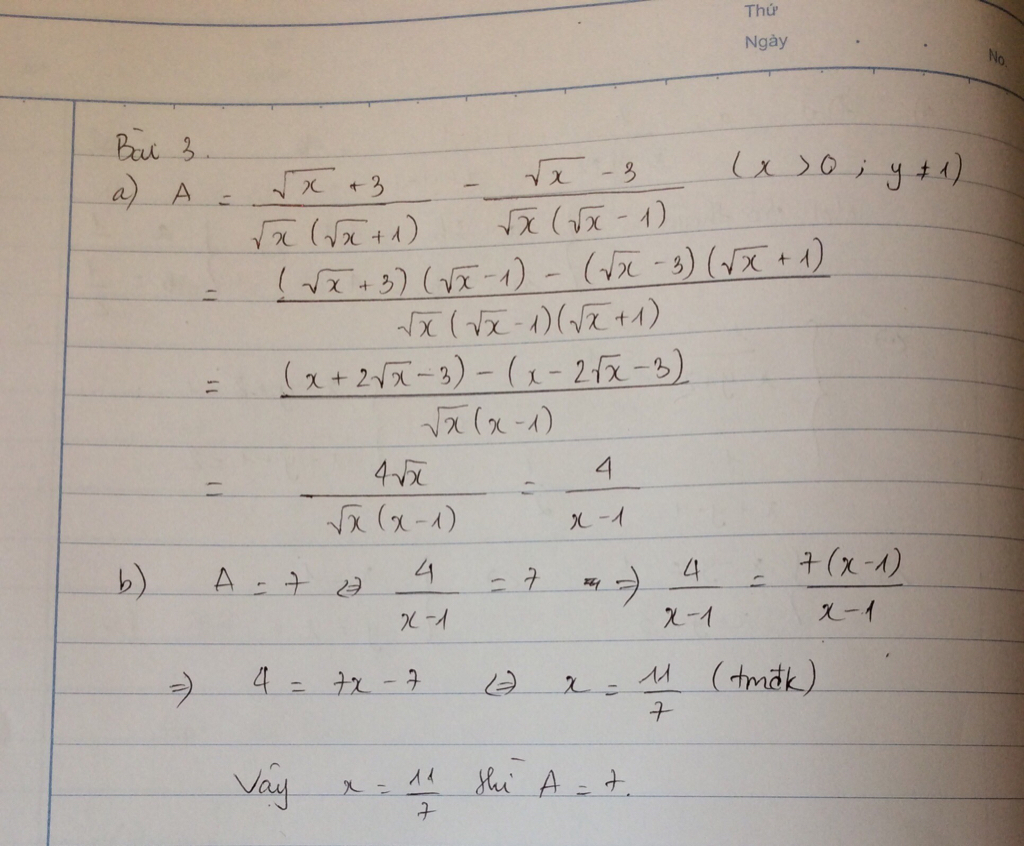 Thứ
Ngày
No.
Bài 3.
a) A = \frac{\sqrt{x} + 3}{\sqrt{x}(\sqrt{x} + 1)} - \frac{\sqrt{x} - 3}{\sqrt{x}(\sqrt{x} - 1)} (x > 0 ; y ≠ 1)
= \frac{(\sqrt{x} + 3)(\sqrt{x} - 1) - (\sqrt{x} - 3)(\sqrt{x} + 1)}{\sqrt{x}(\sqrt{x} - 1)(\sqrt{x} + 1)}
= \frac{(x + 2\sqrt{x} - 3) - (x - 2\sqrt{x} - 3)}{\sqrt{x}(x - 1)}
= \frac{4\sqrt{x}}{\sqrt{x}(x - 1)} = \frac{4}{x - 1}
b) A = 7 ⇔ \frac{4}{x - 1} = 7 ⇒ \frac{4}{x - 1} = \frac{7(x - 1)}{x - 1}
⇒ 4 = 7x - 7 ⇔ x = \frac{11}{7} (tmđk)
Vậy x = \frac{11}{7} thì A = 7.